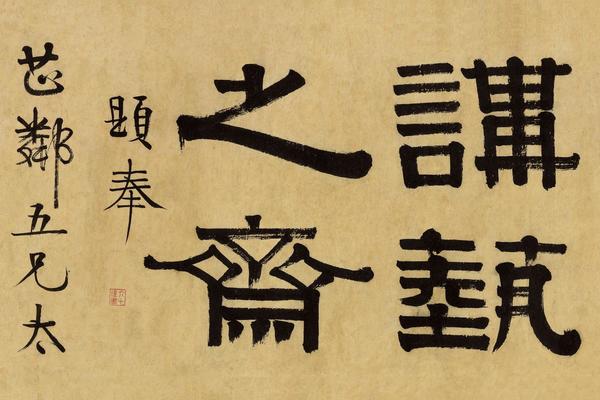 講埶
之齋
題奉
芷鄰五兄太